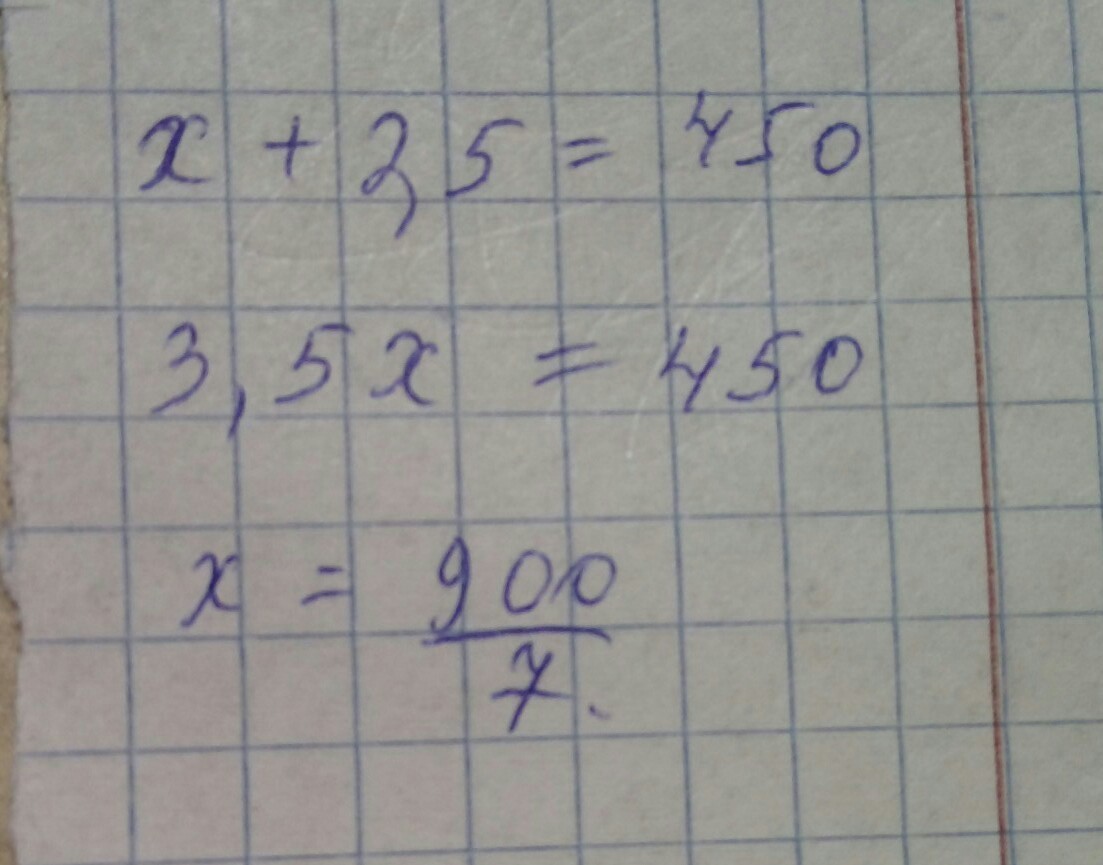 x + 2,5 = 450
3,5x = 450
x = 900/7.